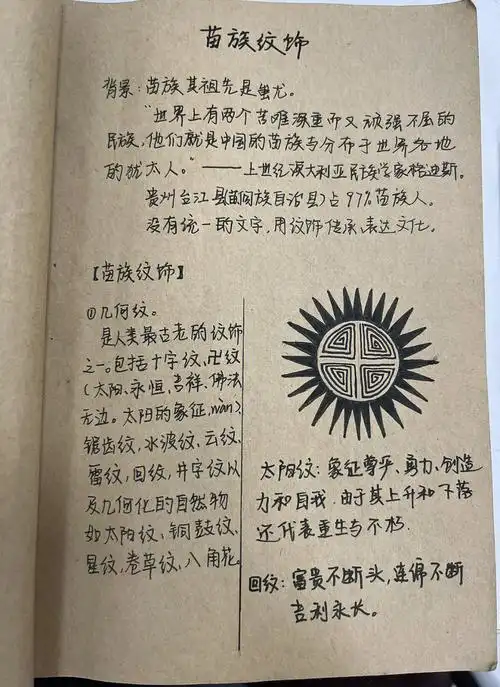 苗族纹饰
背景：苗族其祖先是蚩尤。
"世界上有两个苦难深重而又顽强不屈的
民族，他们就是中国的苗族与分布于世界各地
的犹太人。"——上世纪澳大利亚民族学家格迪斯。
贵州台江县(苗侗族自治县)占97%苗族人。
没有统一的文字，用纹饰传承、表达文化。
【苗族纹饰】
①几何纹。
是人类最古老的纹饰
之一。包括十字纹，卍纹
(太阳、永恒、吉祥、佛法
无边。太阳的象征，wàn)、
锯齿纹，水波纹，云纹，
雷纹，回纹，井字纹以
及几何化的自然物
如太阳纹，铜鼓纹，
星纹，卷草纹，八角花。
太阳纹：象征尊严、勇力、创造
力和自我。由于其上升和下落
还代表重生与不朽.
回纹：富贵不断头，连绵不断
吉利永长。